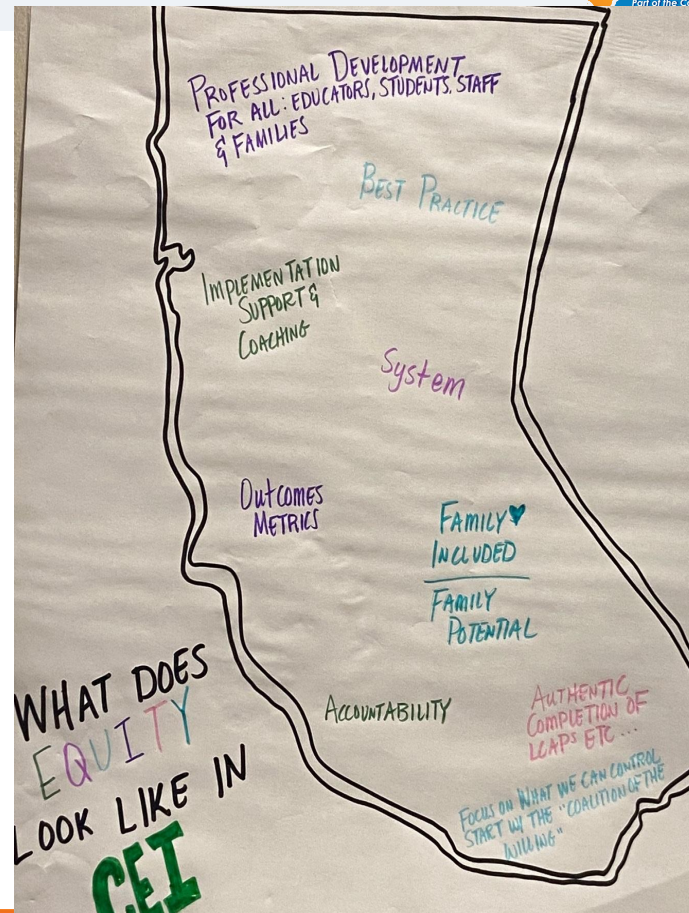 Part of the Co
PROFESSIONAL DEVELOPMENT
FOR ALL: EDUCATORS, STUDENTS, STAFF
& FAMILIES
BEST PRACTICE
IMPLEMENTATION
SUPPORT &
COACHING
System
OUTCOMES
METRICS
FAMILY
INCLUDED
FAMILY
POTENTIAL
ACCOUNTABILITY
AUTHENTIC
COMPLETION OF
LCAPS ETC...
FOCUS ON WHAT WE CAN CONTROL
START W/ THE "COALITION OF THE
WILLING"
WHAT DOES
EQUITY
LOOK LIKE IN
CEI